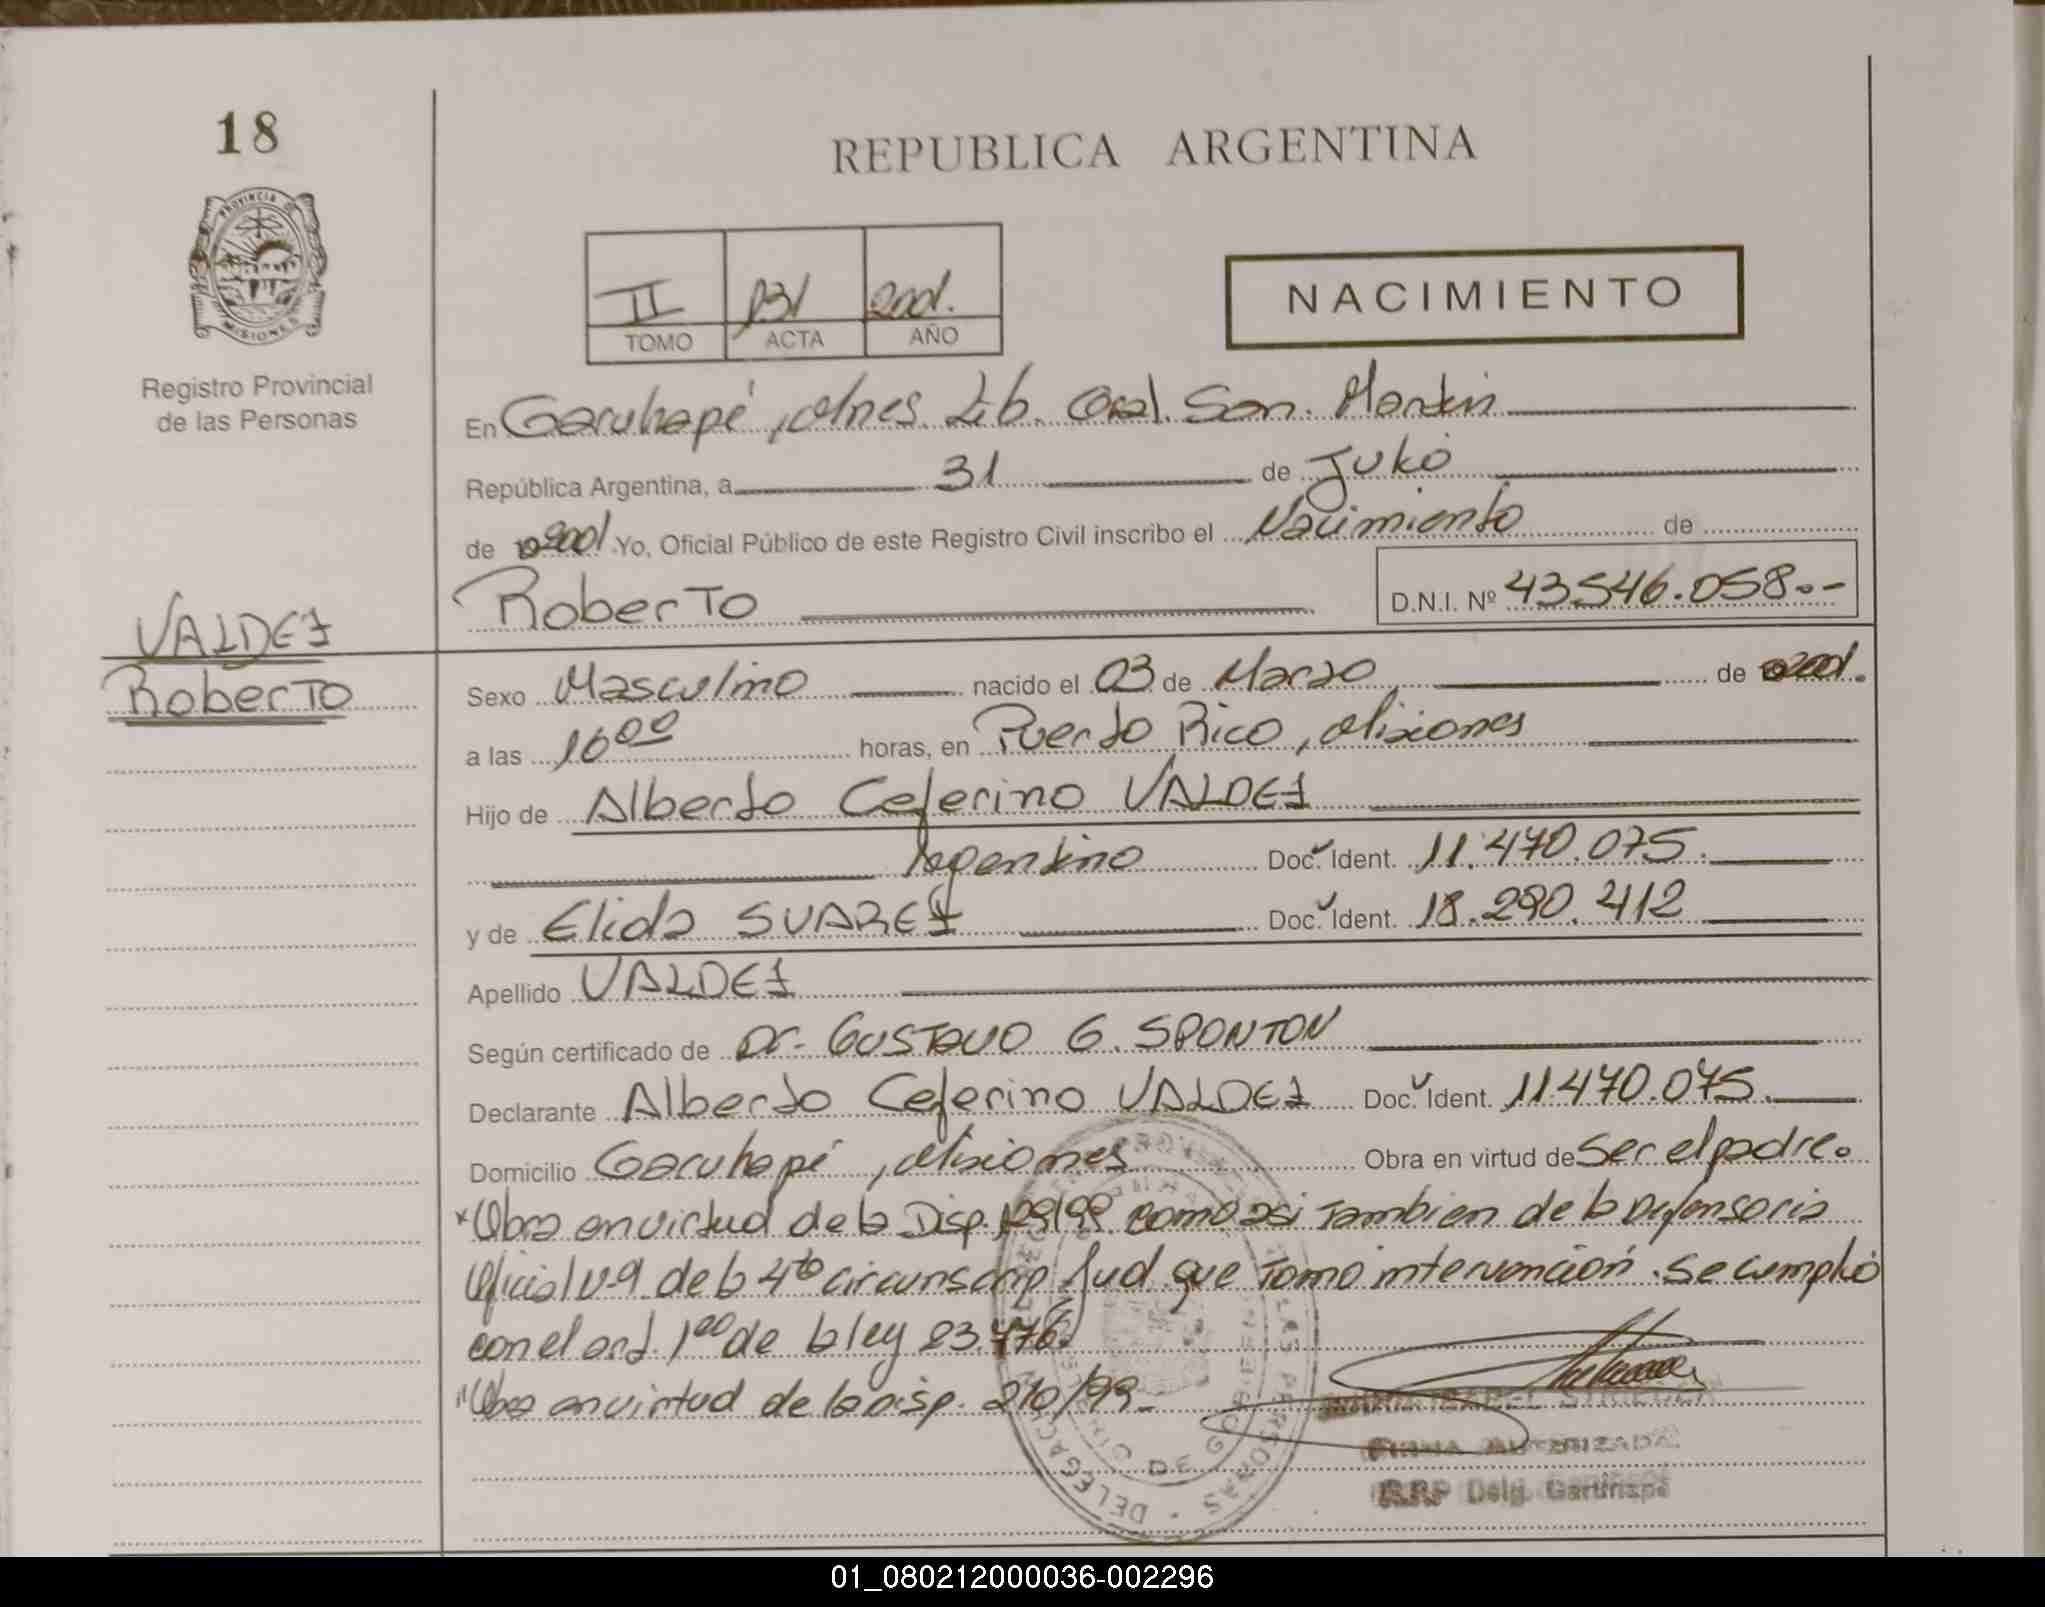 18
REPUBLICA ARGENTINA
PROVINCIA DE
MISIONES
Registro Provincial
de las Personas
II 131 2001.
TOMO ACTA AÑO
NACIMIENTO
En Garuhapé, Mnes. Lib. Gral. San. Martin
República Argentina, a 31 de Julio
de 2001 Yo, Oficial Público de este Registro Civil inscribo el Nacimiento de
Roberto D.N.I. Nº 43.546.058.-
VALDEZ
Roberto
Sexo Masculino nacido el 03 de Marzo de 2001.
a las 16⁰⁰ horas, en Puerto Rico, Misiones
Hijo de Alberto Ceferino VALDEZ
Argentino Doc. Ident. 11.470.075.
y de Elida SUAREZ Doc. Ident. 18.290.412
Apellido VALDEZ
Según certificado de Dr. GUSTAVO G. SPONTON
Declarante Alberto Ceferino VALDEZ Doc. Ident. 11.470.075.
Domicilio Garuhapé, Misiones Obra en virtud de ser el padre.
*Obra en virtud de la Disp. 129/99 como asi Tambien de la Defensoria
Oficial de la 4ta circunscrip Jud que Tomo intervención. Se cumplió
con el art. 1º de la ley 23.776.
"Obra en virtud de la Disp. 210/99-
ISABEL
FIRMA AUTORIZADA
R.R.P Delg. Garuhapé
01_080212000036-002296